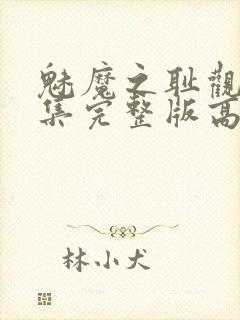 魅魔之耻觀
集完整版高
林小犬